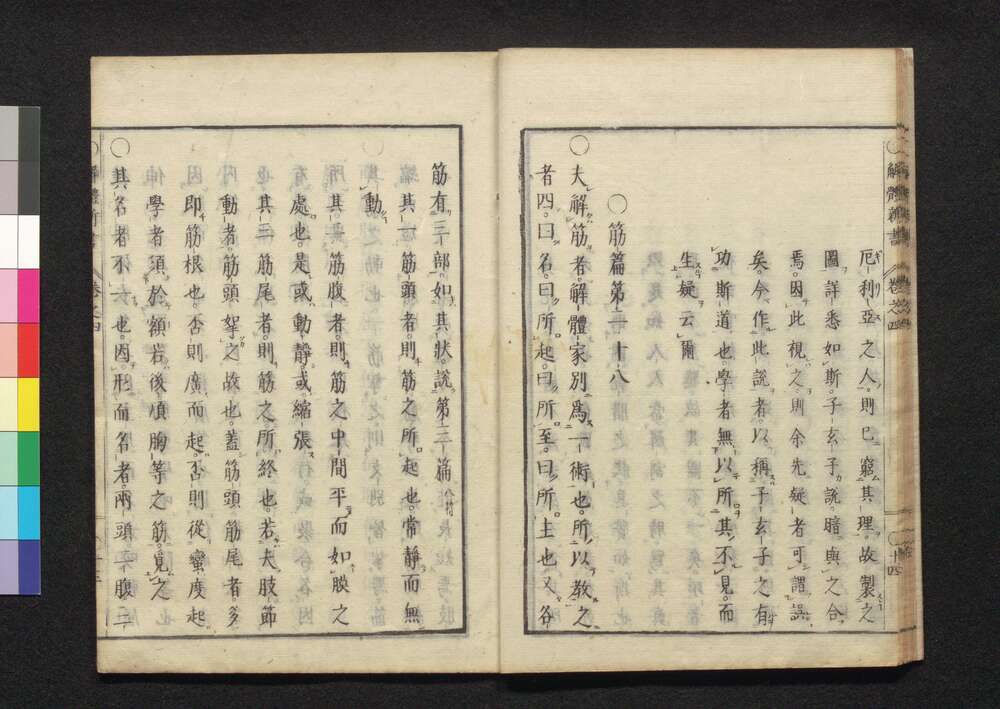 厄利亞之人則已窮其理故製之
圖詳悉如斯子玄子說暗與之合
焉因此視之則余先疑者可謂誤
矣今作此說者以稱子玄子之有
功斯道也學者無以所其不見而
生疑云爾
○筋篇第二十八
○夫解筋者解體家別爲一術也所以教之
者四曰名曰所起曰所至曰所主也又各
筋有三部如其狀說第二篇
其一筋頭者則筋之所起也常靜而無
動
其二筋腹者則筋之中間平而如膜之
處也是或動靜或縮張
其三筋尾者則筋之所終也若夫肢節
動者筋頭挐之故也蓋筋頭筋尾者多
即筋根也否則廣而起否則從蠻度起
學者須於額岩後順胸等之筋覓之
○其名者不一也因形而名者兩頭二腹三
解體新書
卷之四
十四